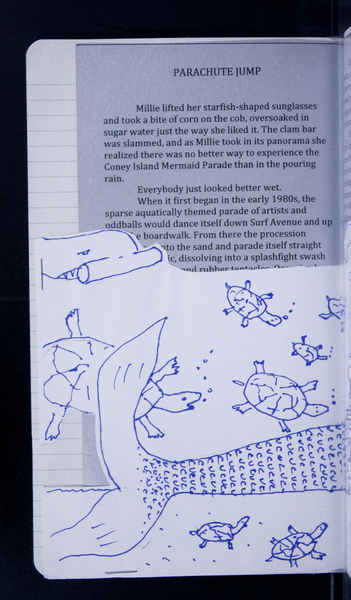 PARACHUTE JUMP
Millie lifted her starfish-shaped sunglasses
and took a bite of corn on the cob, oversoaked in
sugar water just the way she liked it. The clam bar
was slammed, and as Millie took in its panorama she
realized there was no better way to experience the
Coney Island Mermaid Parade than in the pouring
rain.
Everybody just looked better wet.
When it first began in the early 1980s, the
sparse aquatically themed parade of artists and
oddballs would dance itself down Surf Avenue and up
boardwalk. From there the procession
into the sand and parade itself straight
dissolving into a splashfight swash
and rubber tentacles.